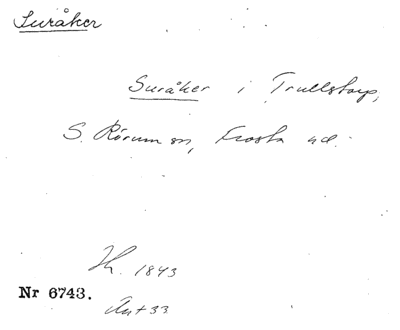 Suråker
Suråker i Trullstorp,
S. Rörum sn, Frosta hd.
H. 1843
Nr 6743.
Ant 33